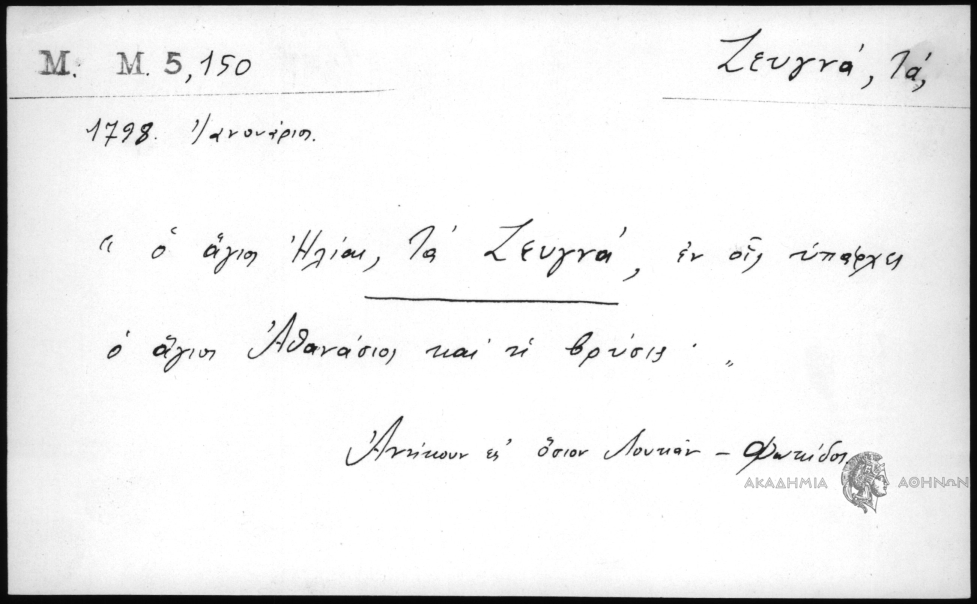 Μ. Μ. 5,150
Ζευγνά, τά,
1798. Ἰανουάριος.
" ὁ ἅγιος Ἠλίας, τά Ζευγνά, ἐν οἷς ὑπάρχει
ὁ ἅγιος Ἀθανάσιος καί ἡ βρύσις. "
Ἀνήκουν εἰς ὅσιον Λουκᾶν – Φωκίδος
ΑΚΑΔΗΜΙΑ ΑΘΗΝΩΝ